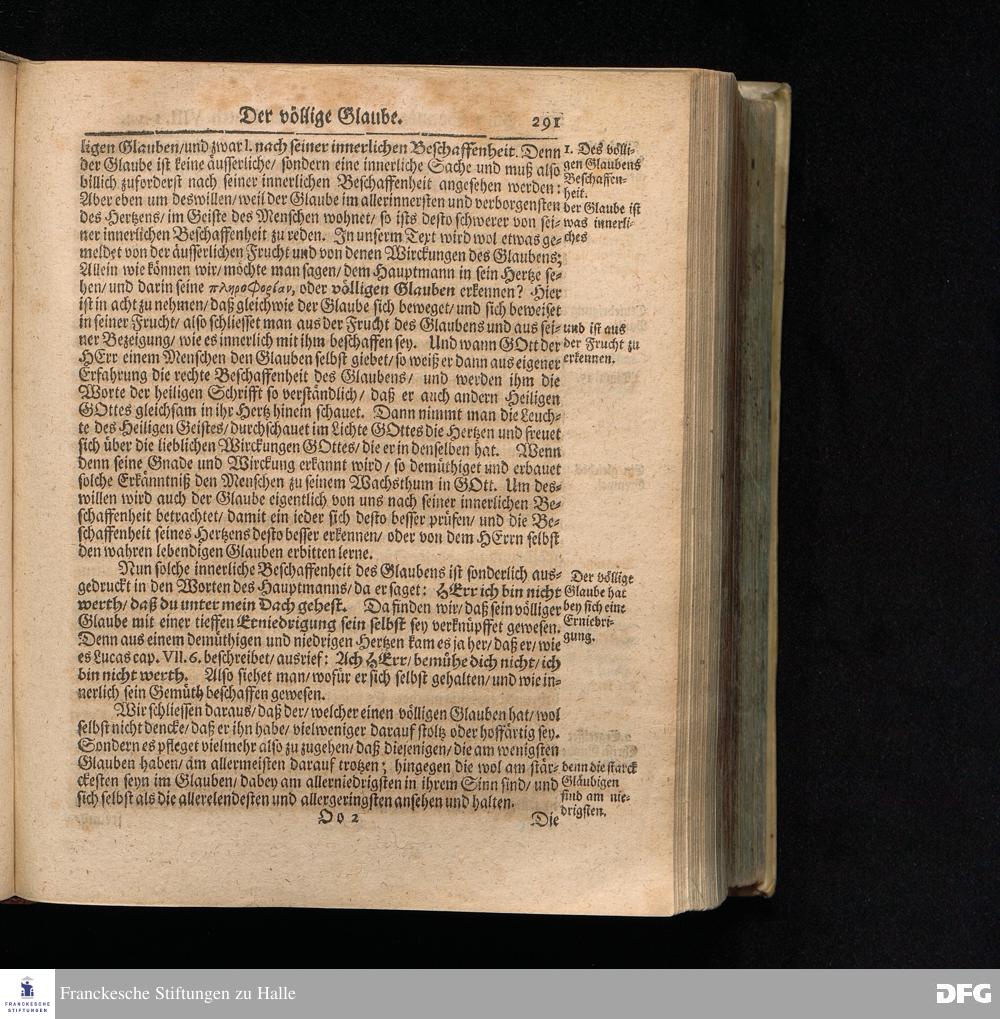 Der völlige Glaube.
291
ligen Glauben/und zwar I. nach seiner innerlichen Beschaffenheit. Denn
der Glaube ist keine äusserliche/ sondern eine innerliche Sache und muß also
billich zuforderst nach seiner innerlichen Beschaffenheit angesehen werden:
Aber eben um deswillen/ weil der Glaube im allerinnersten und verborgensten
des Hertzens/ im Geiste des Menschen wohnet/ so ists desto schwerer von sei-
ner innerlichen Beschaffenheit zu reden. In unserm Text wird wol etwas ge-
meldet von der äusserlichen Frucht und von denen Wirckungen des Glaubens;
Allein wie können wir/ möchte man sagen/ dem Hauptmann in sein Hertze se-
hen/ und darin seine πληροφορίαν, oder völligen Glauben erkennen? Hier
ist in acht zu nehmen/ daß gleichwie der Glaube sich beweget/ und sich beweiset
in seiner Frucht/ also schliesset man aus der Frucht des Glaubens und aus sei-
ner Bezeigung/ wie es innerlich mit ihm beschaffen sey. Und wann GOtt der
HErr einem Menschen den Glauben selbst giebet/ so weiß er dann aus eigener
Erfahrung die rechte Beschaffenheit des Glaubens/ und werden ihm die
Worte der heiligen Schrifft so verständlich/ daß er auch andern Heiligen
GOttes gleichsam in ihr Hertz hinein schauet. Dann nimmt man die Leuch-
te des Heiligen Geistes/ durchschauet im Lichte GOttes die Hertzen und freuet
sich über die lieblichen Wirckungen GOttes/ die er in denselben hat. Wenn
denn seine Gnade und Wirckung erkannt wird/ so demüthiget und erbauet
solche Erkänntniß den Menschen zu seinem Wachsthum in GOtt. Um des-
willen wird auch der Glaube eigentlich von uns nach seiner innerlichen Be-
schaffenheit betrachtet/ damit ein ieder sich desto besser prüfen/ und die Be-
schaffenheit seines Hertzens desto besser erkennen/ oder von dem HErrn selbst
den wahren lebendigen Glauben erbitten lerne.
Nun solche innerliche Beschaffenheit des Glaubens ist sonderlich aus-
gedruckt in den Worten des Hauptmanns/ da er saget: HErr ich bin nicht
werth/ daß du unter mein Dach gehest. Da finden wir/ daß sein völliger
Glaube mit einer tieffen Erniedrigung sein selbst sey verknüpffet gewesen.
Denn aus einem demüthigen und niedrigen Hertzen kam es ja her/ daß er/ wie
es Lucas cap. VII. 6. beschreibet/ ausrief: Ach HErr/ bemühe dich nicht/ ich
bin nicht werth. Also siehet man/ wofür er sich selbst gehalten/ und wie in-
nerlich sein Gemüth beschaffen gewesen.
Wir schliessen daraus/ daß der/ welcher einen völligen Glauben hat/ wol
selbst nicht dencke/ daß er ihn habe/ vielweniger darauf stoltz oder hoffärtig sey.
Sondern es pfleget vielmehr also zu zugehen/ daß diejenigen/ die am wenigsten
Glauben haben/ am allermeisten darauf trotzen; hingegen die wol am stär-
ckesten seyn im Glauben/ dabey am allerniedrigsten in ihrem Sinn sind/ und
sich selbst als die allerelendesten und allergeringsten ansehen und halten.
Oo 2
Die
1. Des völli-
gen Glaubens
Beschaffen-
heit.
der Glaube ist
was innerli-
ches
und ist aus
der Frucht zu
erkennen.
Der völlige
Glaube hat
bey sich eine
Erniebri-
gung.
denn die starck
Gläubigen
sind am nie-
drigsten.
FRANCKESCHE
STIFTUNGEN
Franckesche Stiftungen zu Halle
DFG